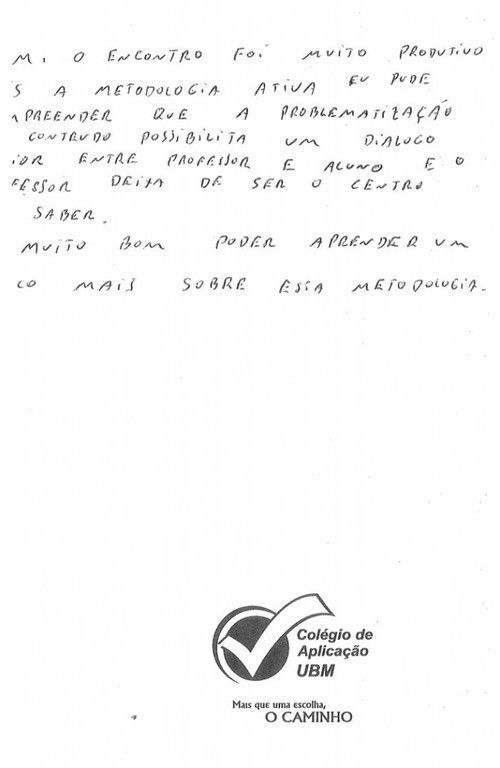 M. O ENCONTRO FOI MUITO PRODUTIVO
S A METODOLOGIA ATIVA EU PUDE
APREENDER QUE A PROBLEMATIZAÇÃO
CONTRUDO POSSIBILITA UM DIALOGO
IOR ENTRE PROFESSOR E ALUNO E O
FESSOR DEIXA DE SER O CENTRO
SABER.
MUITO BOM PODER APRENDER UM
CO MAIS SOBRE ESSA METODOLOGIA.
Colégio de
Aplicação
UBM
Mais que uma escolha,
O CAMINHO